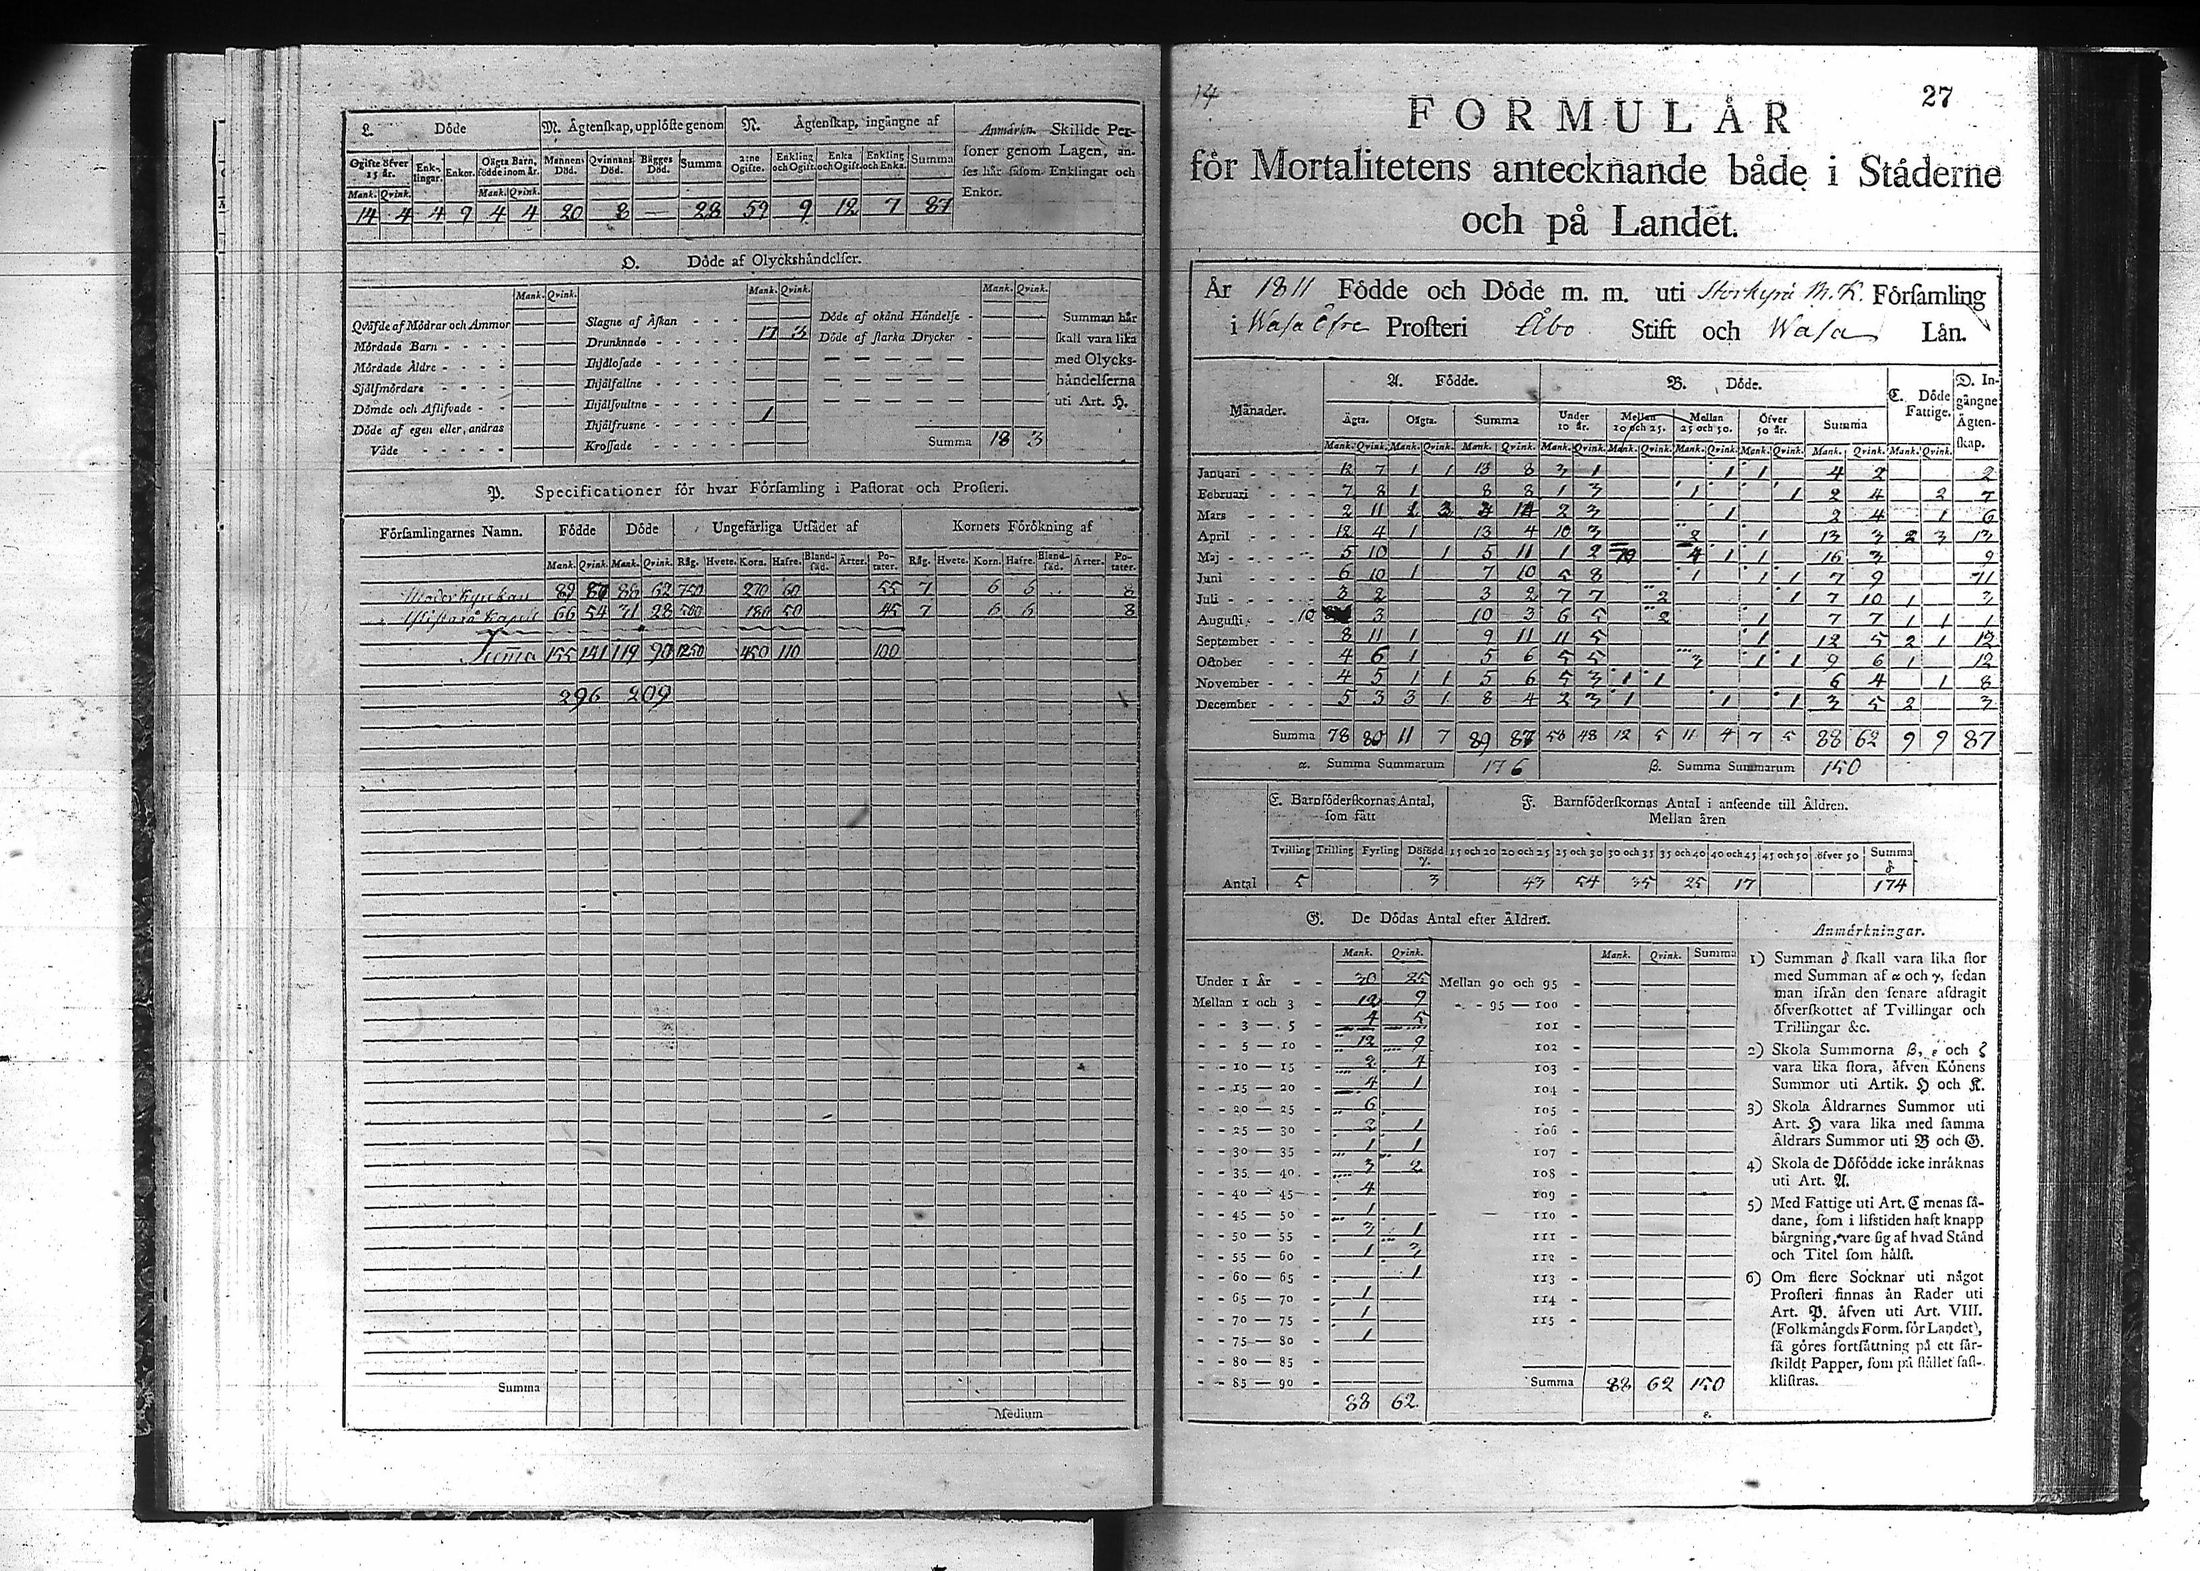 L. Döde
M. Ägtenskap, upplöste genom
N. Ägtenskap, ingångne af
Anmärkn. Skillde Per-
soner genom Lagen, an-
ses här såsom Enklingar och
Enkor.
Ogifte öfver 15 år. Enk-lingar. Enkor. Oägta Barn, födde inom år. Mannens Död. Qvinnans Död. Bägges Död. Summa 2:ne Ogifte. Enkling och Ogift. Enka och Ogift. Enkling och Enka. Summa
Mank. Qvink. Mank. Qvink.
14 4 4 9 4 4 20 8 — 28 59 9 12 7 87
O. Döde af Olyckshändelser.
Mank. Qvink. Mank. Qvink. Mank. Qvink.
Qväfde af Mödrar och Ammor
Mördade Barn
Mördade Äldre
Självmördare
Dömde och Aflifvade
Döde af egen eller andras
Våde
Slagne af Åskan
Drunknade 17 3
Ihjälosade
Ihjälfallne
Ihjälsvultne
Ihjälfrusne 1
Krossade
Döde af okänd Händelse
Döde af starka Drycker
Summa 18 3
Summan här
skall vara lika
med Olycks-
händelserna
uti Art. H.
P. Specificationer för hvar Församling i Pastorat och Prosteri.
Församlingarnes Namn. Födde Döde Ungefärliga Utsädet af Kornets Förökning af
Mank. Qvink. Mank. Qvink. Råg. Hvete. Korn. Hafre. Bland-säd. Ärter. Po-tater. Råg. Hvete. Korn. Hafre. Bland-säd. Ärter. Po-tater.
Moderkyrkan 89 87 88 62 750 270 60 55 7 6 6 8
66 54 31 28 500 180 50 45 7 6 6 8
Summa 155 141 119 90 1250 450 110 100
296 209
Summa
Medium
14
27
FORMULÄR
för Mortalitetens antecknande både i Städerne
och på Landet.
År 1811 Födde och Döde m. m. uti Storkyro M. K. Församling
i Wasa Öfre Prosteri Åbo Stift och Wasa Län.
Månader. A. Födde. B. Döde. C. Döde Fattige. D. Ingångne Ägten-skap.
Ägta. Oägta. Summa Under 10 år. Mellan 10 och 25. Mellan 25 och 50. Öfver 50 år. Summa
Mank. Qvink. Mank. Qvink. Mank. Qvink. Mank. Qvink. Mank. Qvink. Mank. Qvink. Mank. Qvink. Mank. Qvink. Mank. Qvink.
Januari 12 7 1 1 13 8 3 1 1 1 4 2 2
Februari 7 8 1 8 8 1 3 1 1 2 4 2 7
Mars 2 11 2 3 2 3 1 2 4 1 6
April 12 4 1 13 4 10 3 2 1 13 3 2 3 13
Maj 5 10 1 5 11 1 2 10 4 1 1 16 3 9
Juni 6 10 1 7 10 5 8 1 1 1 7 9 11
Juli 3 2 3 2 7 7 2 1 7 10 1 3
Augusti 10 3 10 3 6 5 2 1 7 7 1 1 1
September 8 11 1 9 11 11 5 1 12 5 2 1 12
October 4 6 1 5 6 5 5 3 1 1 9 6 1 12
November 4 5 1 1 5 6 5 3 1 1 6 4 1 8
December 5 3 3 1 8 4 2 3 1 1 1 3 5 2 3
Summa 78 80 11 7 89 87 58 48 12 5 11 4 7 5 88 62 9 9 87
α. Summa Summarum 176 β. Summa Summarum 150
E. Barnföderskornas Antal, som fått
F. Barnföderskornas Antal i anseende till Åldren.
Mellan åren
Tvilling Trilling Fyrling Dödfödd γ. 15 och 20 20 och 25 25 och 30 30 och 35 35 och 40 40 och 45 45 och 50 öfver 50 Summa δ
Antal 5 3 43 54 35 25 17 174
G. De Dödas Antal efter Åldren.
Mank. Qvink. Mank. Qvink. Summa
Under 1 År 30 25 Mellan 90 och 95
Mellan 1 och 3 12 9 95 — 100
3 — 5 4 5 101
5 — 10 12 9 102
10 — 15 2 4 103
15 — 20 4 1 104
20 — 25 6 105
25 — 30 3 1 106
30 — 35 1 1 107
35 — 40 3 2 108
40 — 45 4 109
45 — 50 1 110
50 — 55 3 1 111
55 — 60 1 3 112
60 — 65 1 113
65 — 70 1 114
70 — 75 1 115
75 — 80 1
80 — 85
85 — 90 Summa 88 62 150
88 62
Anmärkningar.
1) Summan δ skall vara lika stor
med Summan af α och γ, sedan
man ifrån den senare afdragit
öfverskottet af Tvillingar och
Trillingar &c.
2) Skola Summorna β, ε och ζ
vara lika stora, äfven Könens
Summor uti Artik. H och K.
3) Skola Åldrarnes Summor uti
Art. H vara lika med samma
Åldrars Summor uti B och G.
4) Skola de Döfödde icke inräknas
uti Art. A.
5) Med Fattige uti Art. C menas så-
dane, som i lifstiden haft knapp
bärgning, vare sig af hvad Stånd
och Titel som hälst.
6) Om flere Socknar uti något
Prosteri finnas än Rader uti
Art. P. äfven uti Art. VIII.
(Folkmängds Form. för Landet),
så göres fortsättning på ett sär-
skildt Papper, som på stället fast-
klistras.